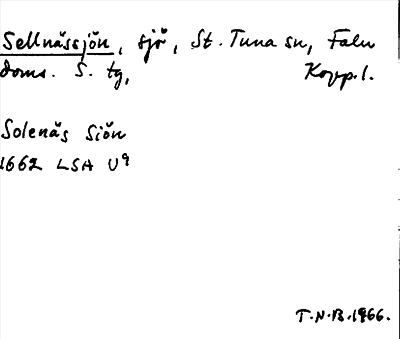 Sellnässjön, sjö, St. Tuna sn, Falu
doms. S. tg, Kopp.l.
Solenäs Siön
1662 LSA U9
T.N.B. 1966.